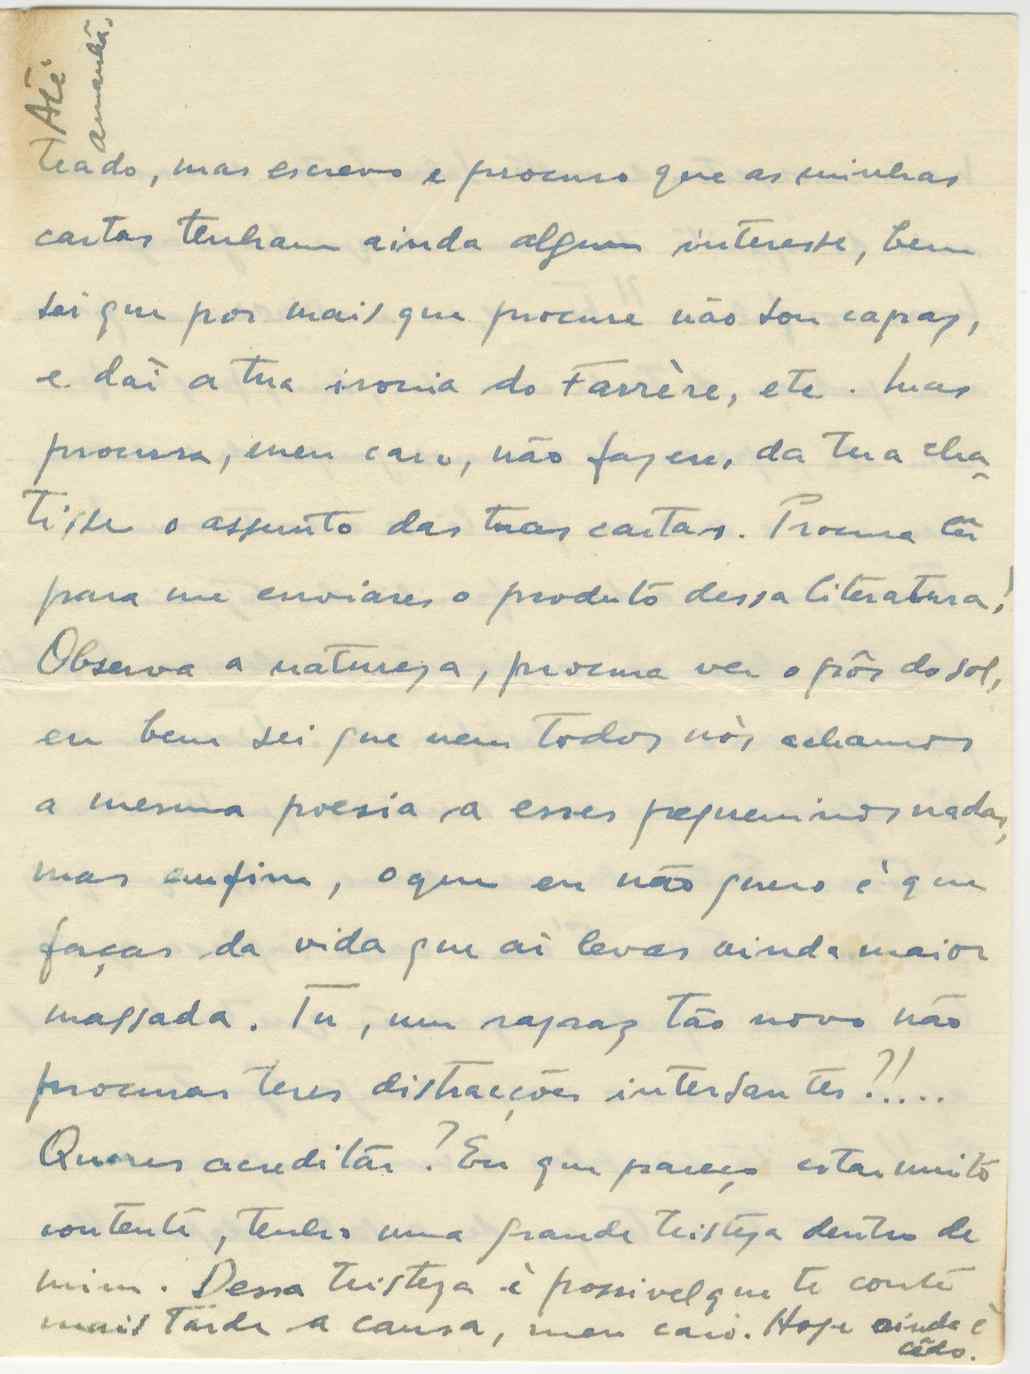 trado, mas escrevo e procuro que as minhas
cartas tenham ainda algum interesse, bem
sei que por mais que procure não sou capaz,
e daí a tua ironia do Farrère, etc. Mas
procura, meu caro, não fazeres da tua cha-
tisse o assunto das tuas cartas. Procura lêr
para me enviares o produto dessa literatura!
Observa a natureza, procura ver o pôr do sol,
eu bem sei que nem todos nós achamos
a mesma poesia a esses pequeninos nadas,
mas emfim, o que eu não quero é que
faças da vida que aí levas ainda maior
massada. Tu, um rapaz tão novo não
procuras teres distracções intersantes?!....
Queres acreditár? Eu que pareço estar muito
contente, tenho uma grande tristeza dentro de
mim. Dessa tristeza é possivel que te conte
mais tarde a causa, meu caro. Hoje ainda é
cêdo.
Até
amanhã,